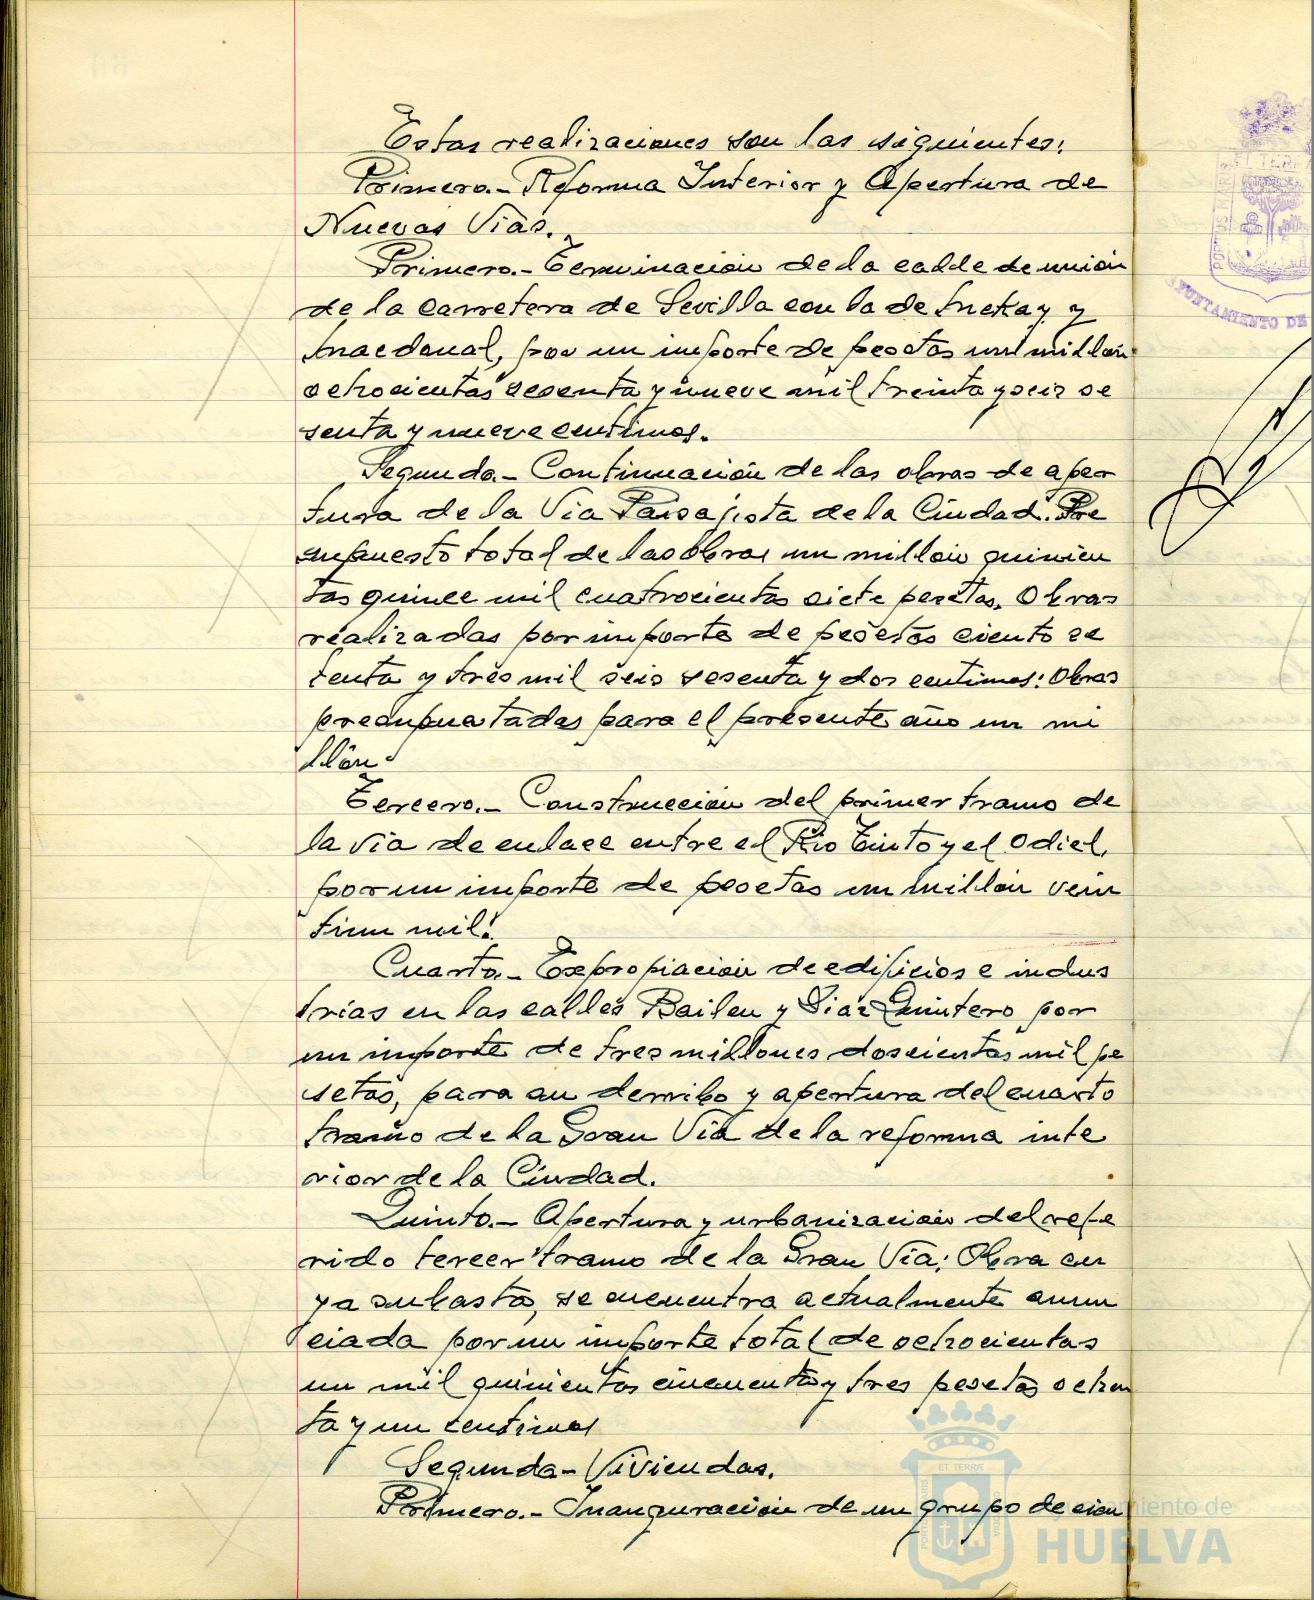 Estas realizaciones son las siguientes:
Primero.- Reforma Interior y Apertura de
Nuevas Vías.
Primero.- Terminación de la calle de unión
de la carretera de Sevilla con la de y
por un importe de pesetas un millón
ochocientas sesenta y nueve mil treinta y seis se
senta y nueve centimos.
Segundo.- Continuación de las obras de aper
tura de la Vía Paisajista de la Ciudad. Pre
supuesto total de las obras un millón quinien
tas quince mil cuatrocientas siete pesetas. Obras
realizadas por importe de pesetas ciento se
tenta y tres mil seis sesenta y dos centimos: Obras
presupuestadas para el presente año un mi
llón.
Tercero.- Construcción del primer tramo de
la vía de enlace entre el Rio Tinto y el Odiel,
por un importe de pesetas un millón vein
tiun mil.
Cuarto.- Expropiación de edificios e indus
trias en las calles Bailen y Diaz Quintero por
un importe de tres millones doscientas mil pe
setas, para su derribo y apertura del cuarto
tramo de la Gran Vía de la reforma inte
rior de la Ciudad.
Quinto.- Apertura y urbanización del refe
rido tercer tramo de la Gran Vía; Obra cu
ya subasta, se encuentra actualmente anun
ciada por un importe total de ochocientas
un mil quinientas cincuenta y tres pesetas ochen
ta y un centimos
Segunda- Viviendas.
Primero.- Inauguración de un grupo de cien
AYUNTAMIENTO DE
ET TERRAE
Ayuntamiento de
HUELVA